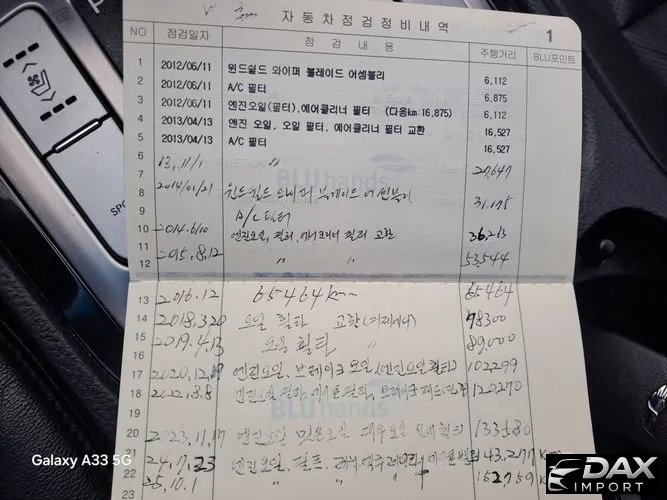 자동차점검정비내역
1
NO 점검일자 점검내용 주행거리 BLU포인트
1 2012/06/11 윈드쉴드 와이퍼 블레이드 어셈블리 6,112
2 2012/06/11 A/C 필터 6,875
3 2012/06/11 엔진오일(필터),에어클리너 필터 (다음km:16,875) 6,112
4 2013/04/13 엔진 오일, 오일 필터, 에어클리너 필터 교환 16,527
5 2013/04/13 A/C 필터 16,527
6 13, 11/1 〃 27,647
7
8 2014/01/21 윈드쉴드 와이퍼 브레이드 어셈부리 31,195
9 A/C 필터
10 2014.6.10 엔진오일, 필터, 에어크리너 필터 교환 36,263
11
12 2015.8.12 〃 〃 53,544
BLUhands
13 2016.12 65464km 65464
14 2018.3.20 오일 필타 교환 78300
15 2019.4.13 오일 필타 〃 89,000
16
17 2020.12. 엔진오일, 브레이크 오일, (엔진오일필터) 102299
18 2022.8.8 엔진오일 필타, 필타, 브레이크 120270
BLUhands
20 2023.11.17 엔진오일
21 24.7.23 엔진오일, 필트, 43,277 km
22 25.10.1 〃 〃 〃 152759
23
SPO
P
Galaxy A33 5G
DAX
IMPORT